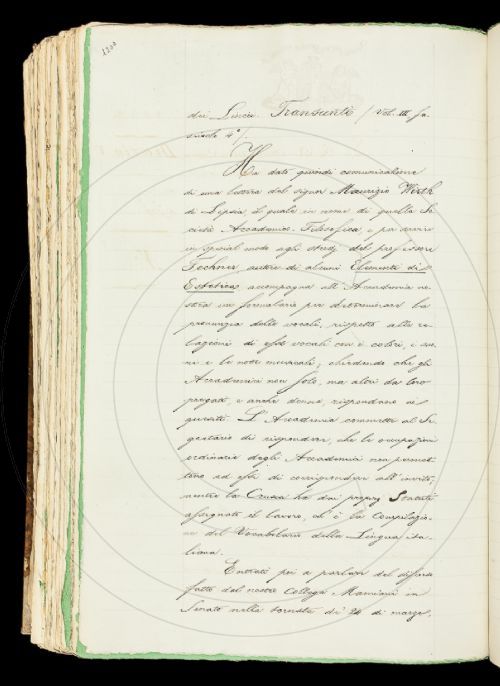 1200
dei Lincei. Transunti (Vol. III fa-
scicolo 4º).
Ha dato quindi comunicazione
di una lettera del signor Maurizio Wirth
di Lipsia, il quale in nome di quella So-
cietà Accademico-Filosofica e per servire
in special modo agli studj del professore
Fechner autore di alcuni Elementi di
Estetica, accompagna all'Accademia no-
stra un formulario per determinare la
pronunzia delle vocali, rispetto alle re-
lazioni di esse vocali con i colori, i suo-
ni e le note musicali; chiedendo che gli
Accademici non solo, ma altri da loro
pregati, e anche donne, rispondano ai
quesiti. L'Accademia commette al Se-
gretario di rispondere, che le occupazioni
ordinarie degli Accademici non permet-
tono ad essi di corrispondere all'invito,
mentre la Crusca ha dai proprj Statuti
assegnato il lavoro, ch'è la Compilazio-
ne del Vocabolario della Lingua ita-
liana.
Entrati poi a parlare del discorso
fatto dal nostro Collega Mamiani in
Senato nella tornata de' 24 di marzo,